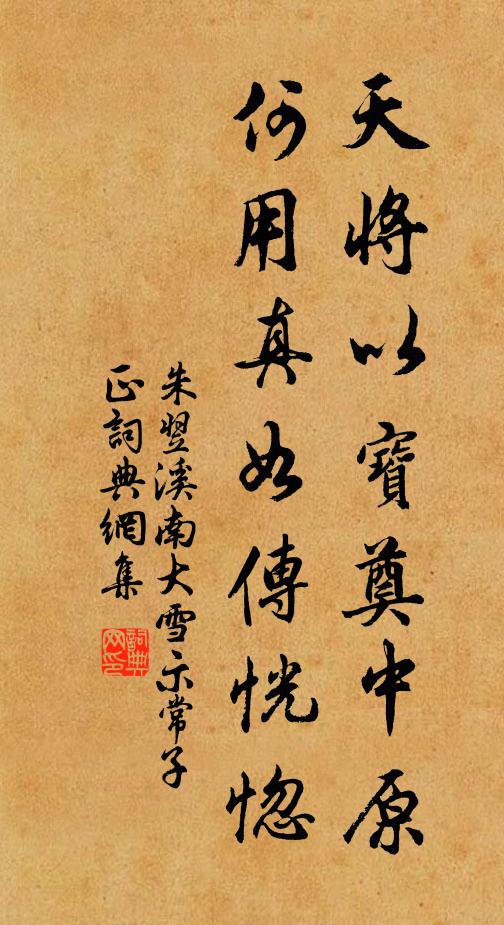 天將以寶奠中原
何用真如傳恍惚
朱翌溪南大雪示常子
正詞典網集
詞典网印